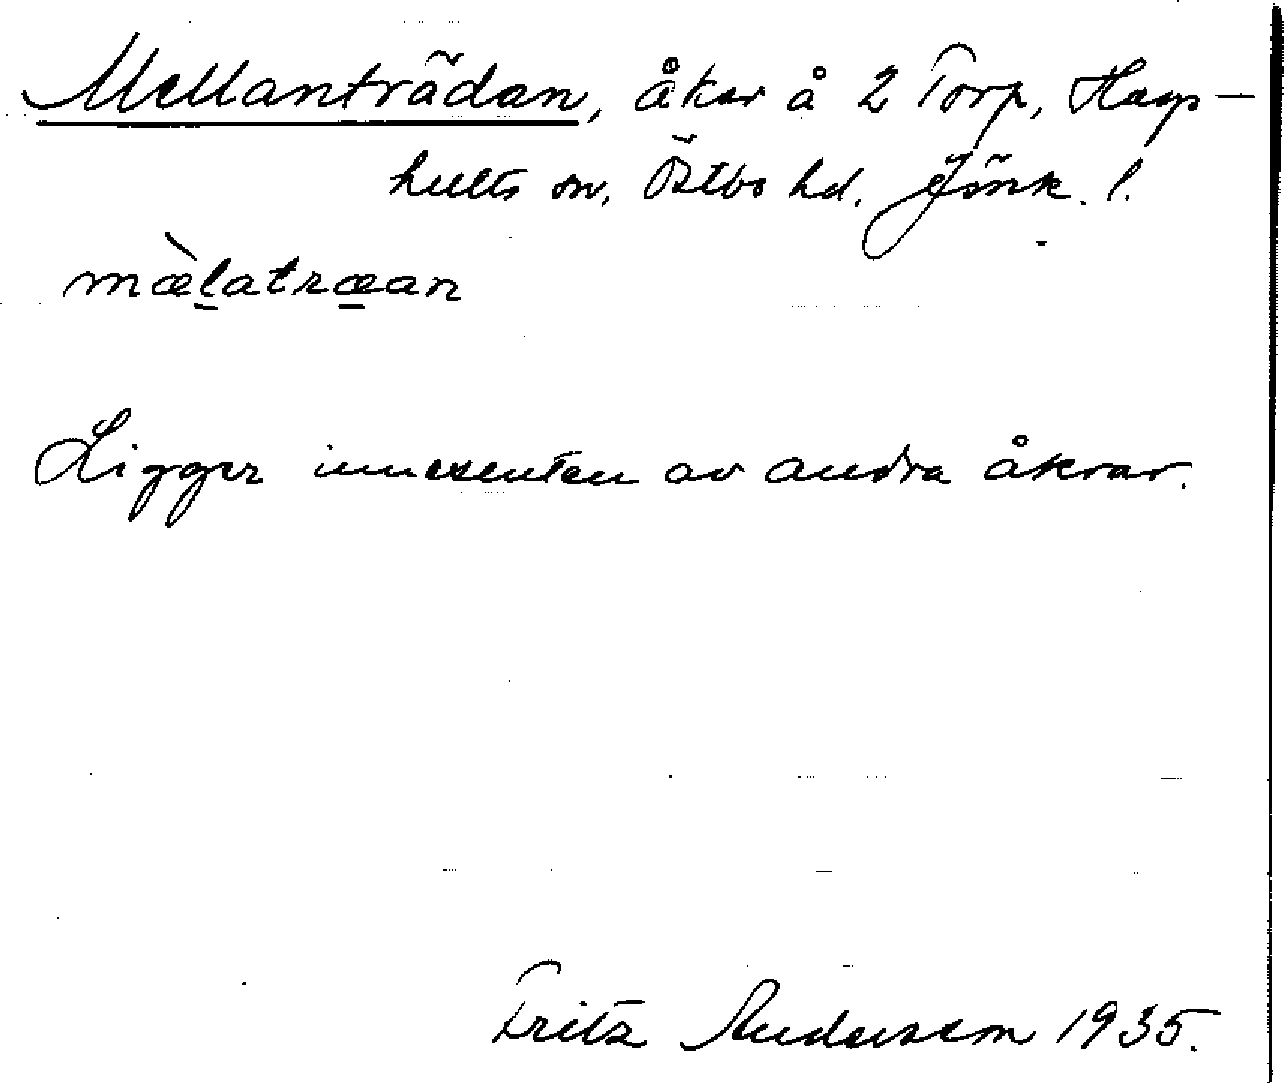 Mellanträdan, åker å 2 Torp, Hags-
hults sn, Östbo hd. Jönk. l.
mæ̀l̠atræ̠an
Ligger innesluten av andra åkrar.
Fritz Andersson 1935.